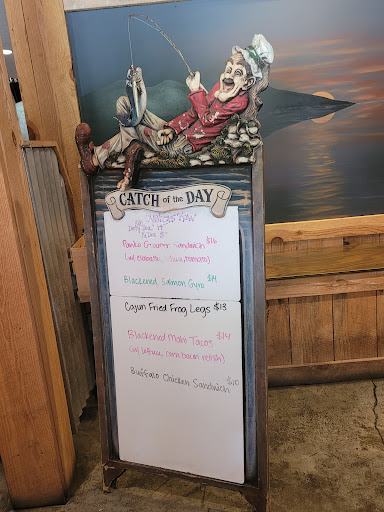 CATCH of the DAY
Panko Grouper Sandwich $16
(w/ ciabatta, tomato)
Blackened Salmon Gyro $14
Cajun Fried Frog Legs $13
Blackened Mahi Tacos $14
(w/ lettuce, corn bacon relish)
Buffalo Chicken Sandwich $10